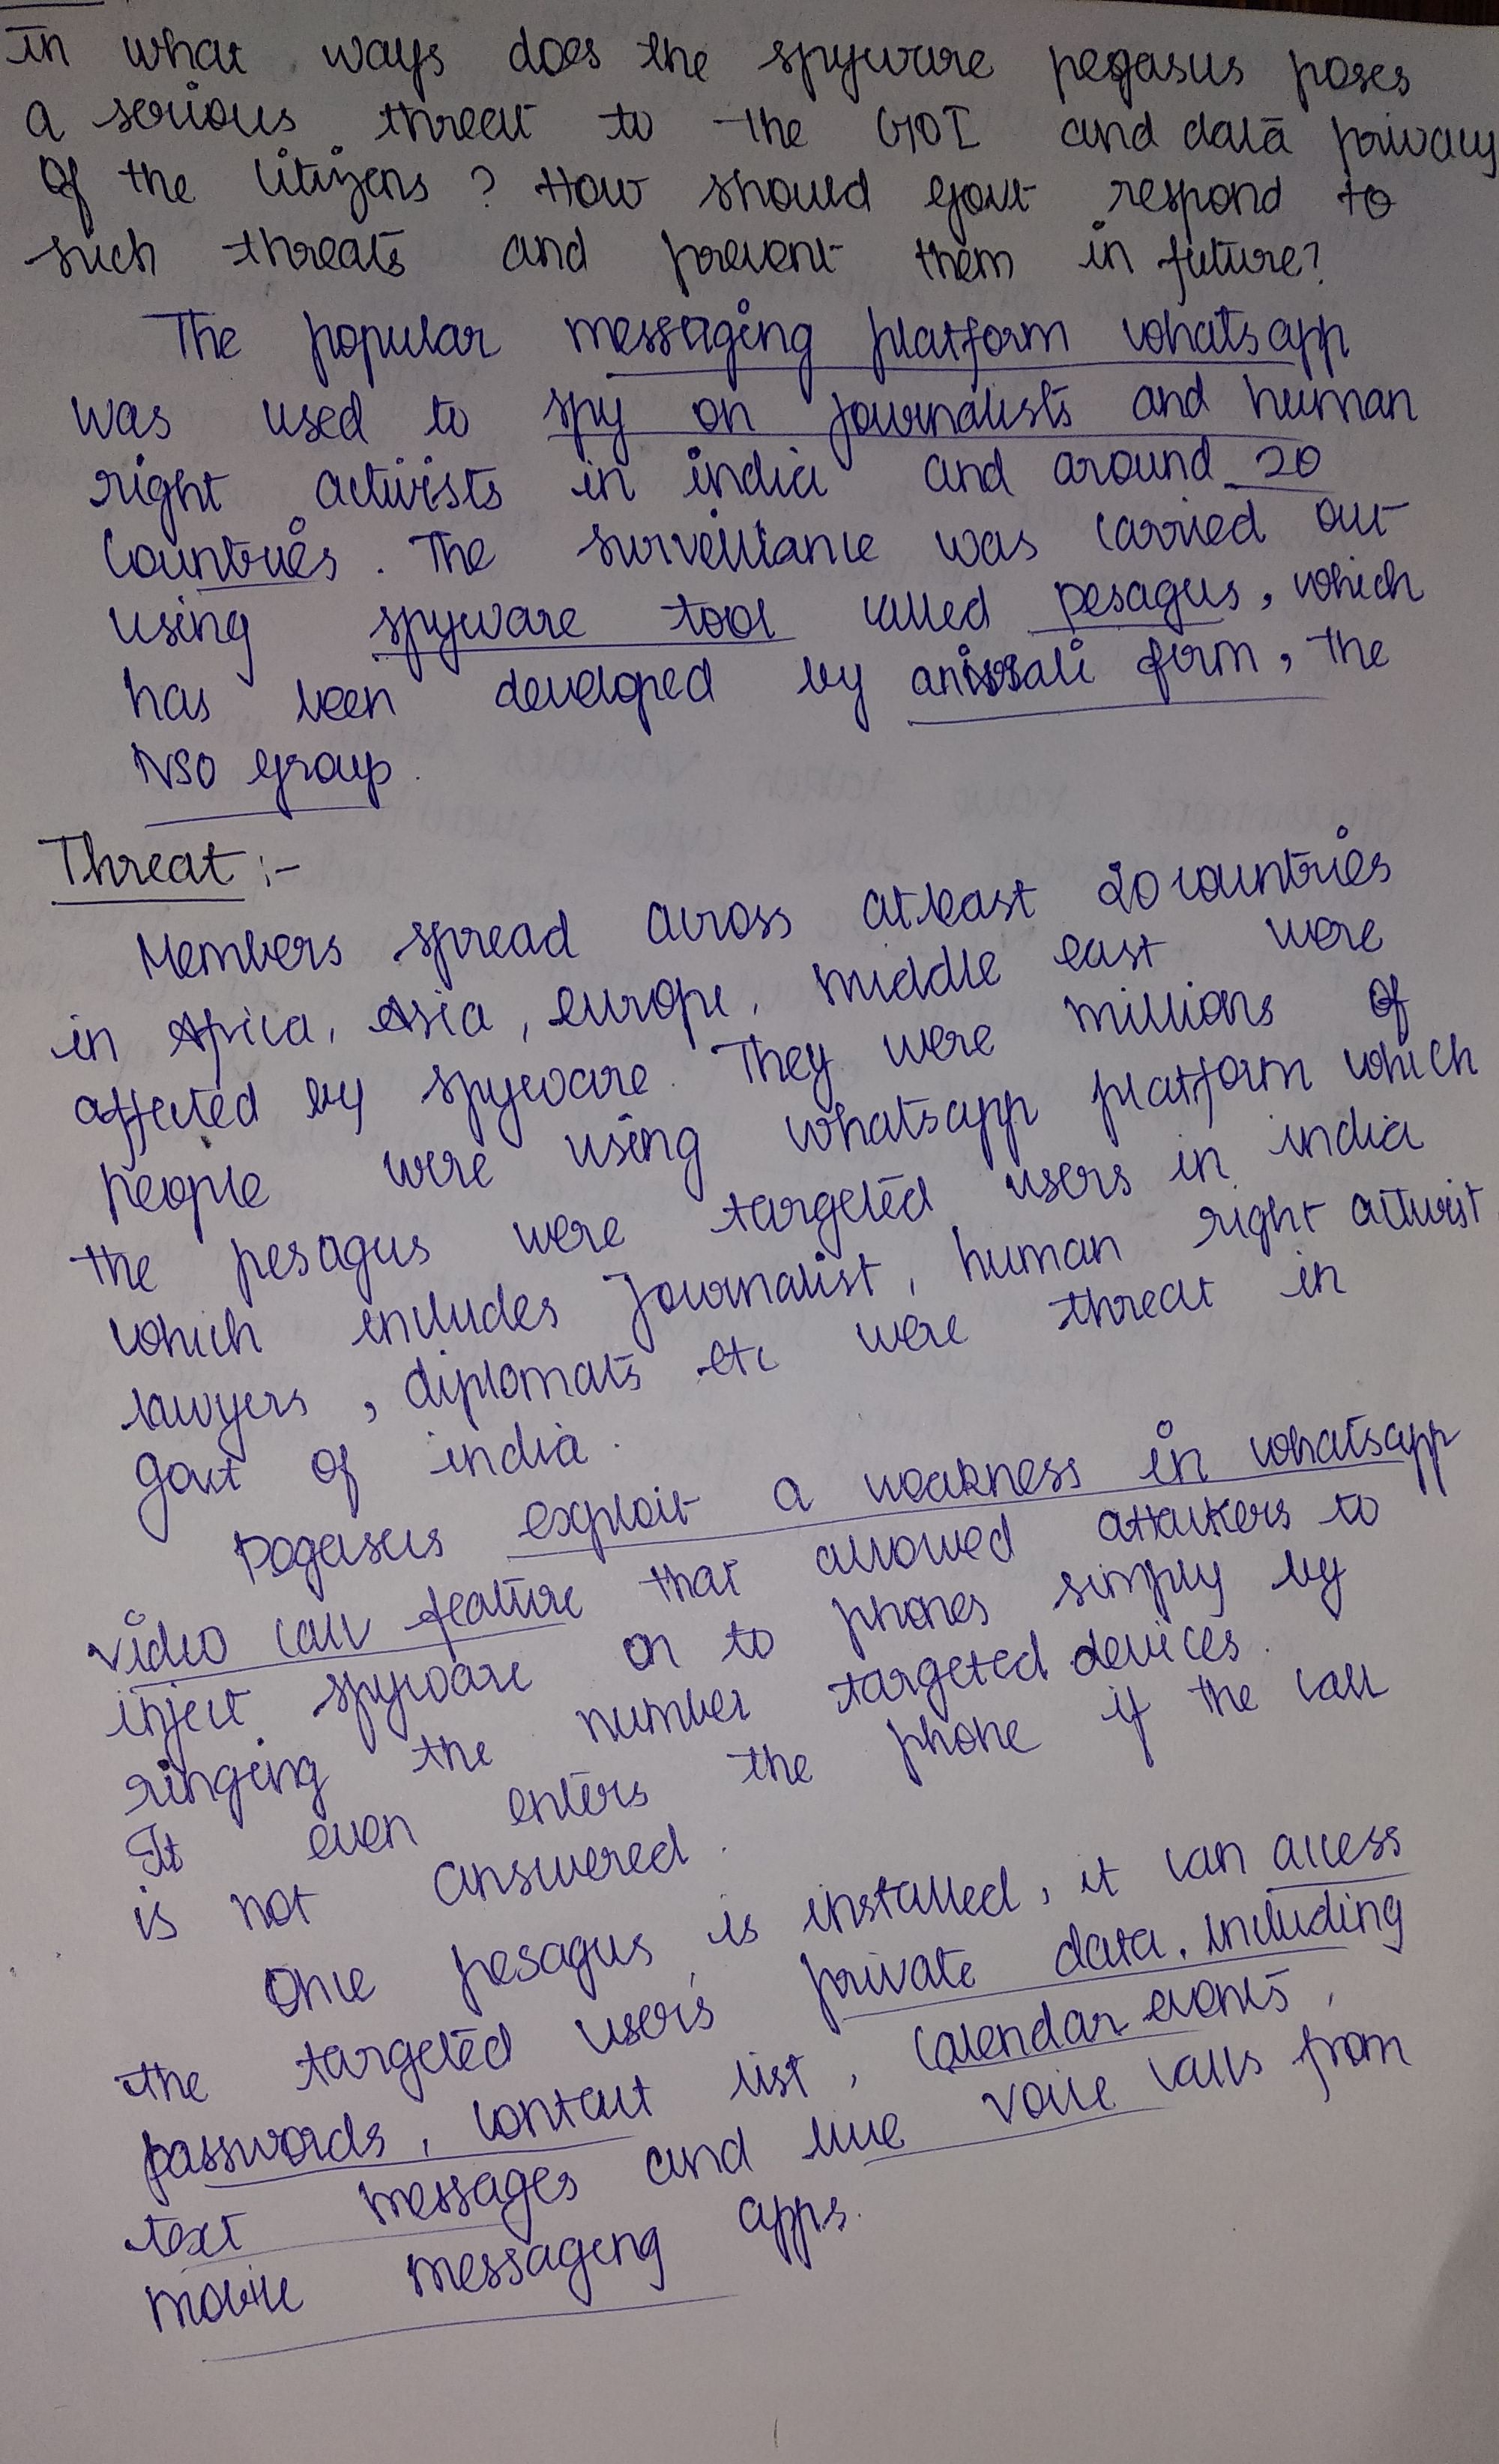 in what ways does the spyware pegasus poses
a serious threat to the GOI and data privacy
of the citizens ? How should govt respond to
such threats and prevent them in future?
The popular messaging platform whatsapp
was used to spy on journalists and human
right activists in india and around 20
countries. The surveillance was carried out
using spyware tool called pesagus, which
has been developed by an firm, the
NSO group.
Threat :-
Members spread across atleast 20 countries
in Africa, Asia, europe, middle east were
affected by spyware. They were millions of
people were using whatsapp platform which
the pesagus were targeted users in india
which includes Journalist, human right activist
lawyers, diplomats etc were threat in
govt of india.
Pogasus exploit a weakness in whatsapp
video call feature that allowed attackers to
inject spyware on to phones simply by
ringing the number targeted devices.
It even enters the phone if the call
is not answered.
Once pesagus is installed, it can access
the targeted users' private data, including
passwords, contact list, calendar events,
text messages and live voice calls from
mobile messaging apps.